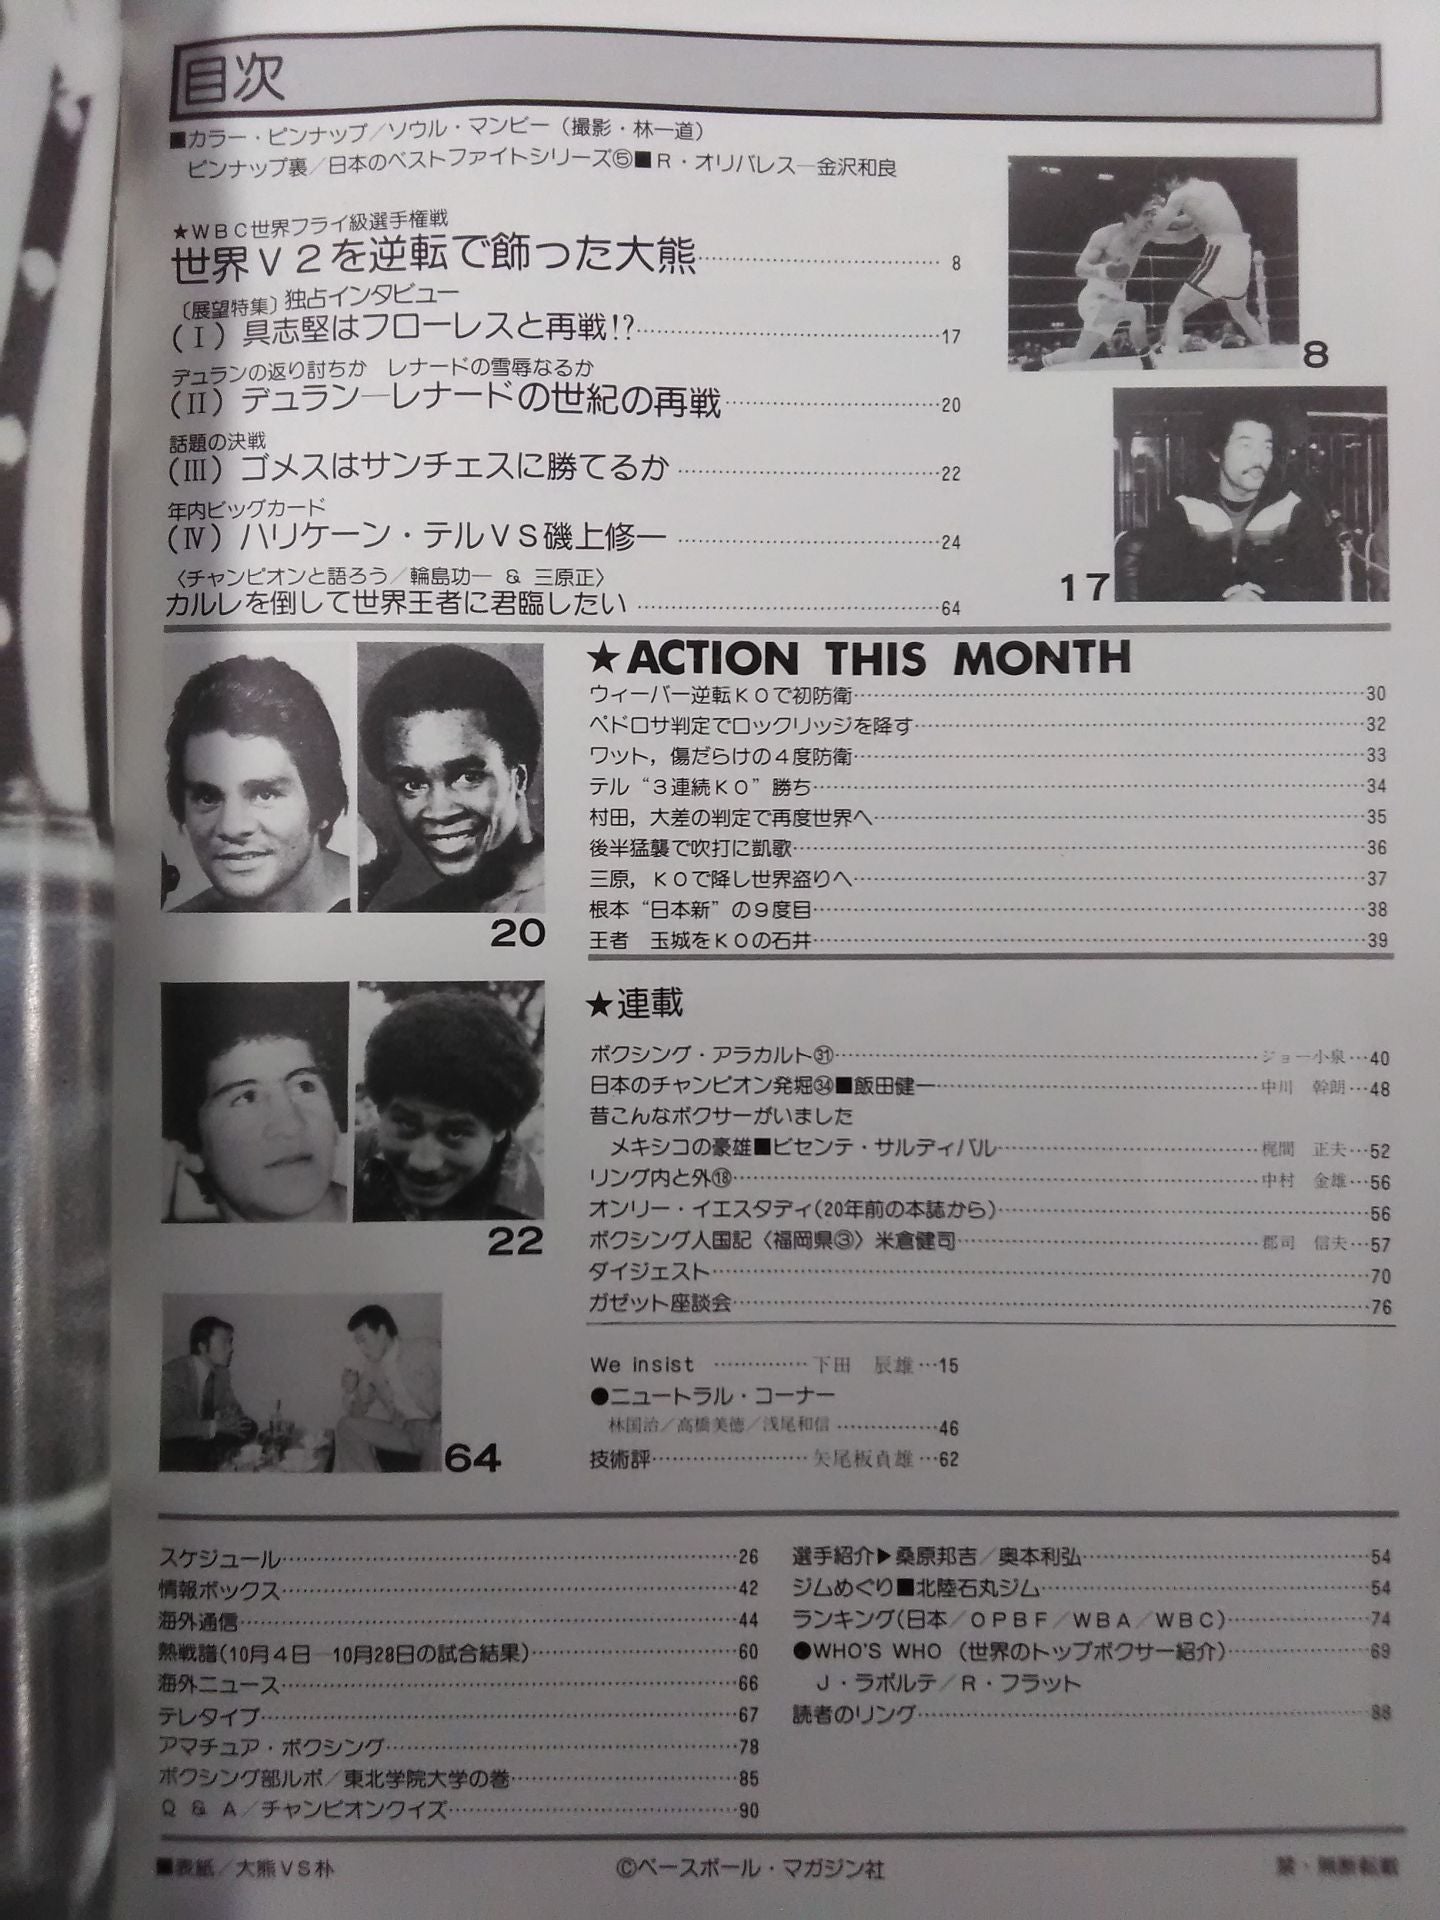 目次
■カラー・ピンナップ／ソウル・マンビー（撮影・林一道）
ピンナップ裏／日本のベストファイトシリーズ⑤■R・オリバレス―金沢和良
★WBC世界フライ級選手権戦
世界V2を逆転で飾った大熊……8
〔展望特集〕独占インタビュー
（Ⅰ）具志堅はフローレスと再戦!?……17
デュランの返り討ちか　レナードの雪辱なるか
（Ⅱ）デュラン―レナードの世紀の再戦……20
話題の決戦
（Ⅲ）ゴメスはサンチェスに勝てるか……22
年内ビッグカード
（Ⅳ）ハリケーン・テルVS磯上修一……24
〈チャンピオンと語ろう／輪島功一 & 三原正〉
カルレを倒して世界王者に君臨したい……64
8
17
20
22
64
★ACTION THIS MONTH
ウィーバー逆転KOで初防衛……30
ペドロサ判定でロックリッジを降す……32
ワット，傷だらけの4度防衛……33
テル“3連続KO”勝ち……34
村田，大差の判定で再度世界へ……35
後半猛襲で吹打に凱歌……36
三原，KOで降し世界盗りへ……37
根本“日本新”の9度目……38
王者　玉城をKOの石井……39
★連載
ボクシング・アラカルト㉛……ジョー小泉…40
日本のチャンピオン発掘㉞■飯田健一……中川　幹朗…48
昔こんなボクサーがいました
メキシコの豪雄■ビセンテ・サルディバル……梶間　正夫…52
リング内と外⑱……中村　金雄…56
オンリー・イエスタディ（20年前の本誌から）……56
ボクシング人国記〈福岡県③〉米倉健司……郡司　信夫…57
ダイジェスト……70
ガゼット座談会……76
We insist……下田　辰雄…15
●ニュートラル・コーナー
林国治／高橋美徳／浅尾和信……46
技術評……矢尾板貞雄…62
スケジュール……26
情報ボックス……42
海外通信……44
熱戦譜（10月4日―10月28日の試合結果）……60
海外ニュース……66
テレタイプ……67
アマチュア・ボクシング……78
ボクシング部ルポ／東北学院大学の巻……85
Q & A／チャンピオンクイズ……90
選手紹介▶桑原邦吉／奥本利弘……54
ジムめぐり■北陸石丸ジム……54
ランキング（日本／OPBF／WBA／WBC）……74
●WHO'S WHO（世界のトップボクサー紹介）……69
J・ラポルテ／R・フラット
読者のリング……88
■表紙／大熊VS朴
©ベースボール・マガジン社
禁・無断転載